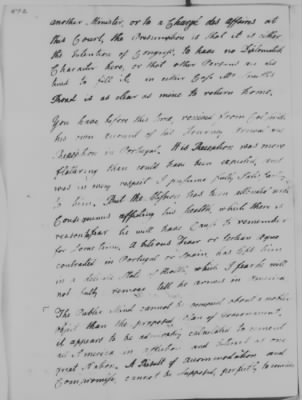 another Minister, or to a Chargé des Affaires at
this Court, the Presumption is that it is either
the Intention of Congress, to have no Diplomatick
Character here, or that other Persons are
to fill it, in either Case Mr
Road is as clear as mine to return home.
You have before this time, received from Col
his own account of his Journey
Reception in Portugal. His Reception was more
flattering than could have been expected, and
was in every respect I presume
to him. But the has been attended with
Consequences affecting his health, which there is
reason to fear he will have Cause to remember
for some time. A bilious Fever or tertian Ague
contracted in Portugal or Spain has left him
in a State of Health, which I fear he will
not fully remove till he arrives in America
The Public Mind cannot be occupied about a nobler
object than the proposed Plan of Government.
it appears to be admirably calculated to cement
all America in affection and Interest as one
great Nation. A Result of Accommodation and
Compromise, cannot be supposed, perfectly to coincide